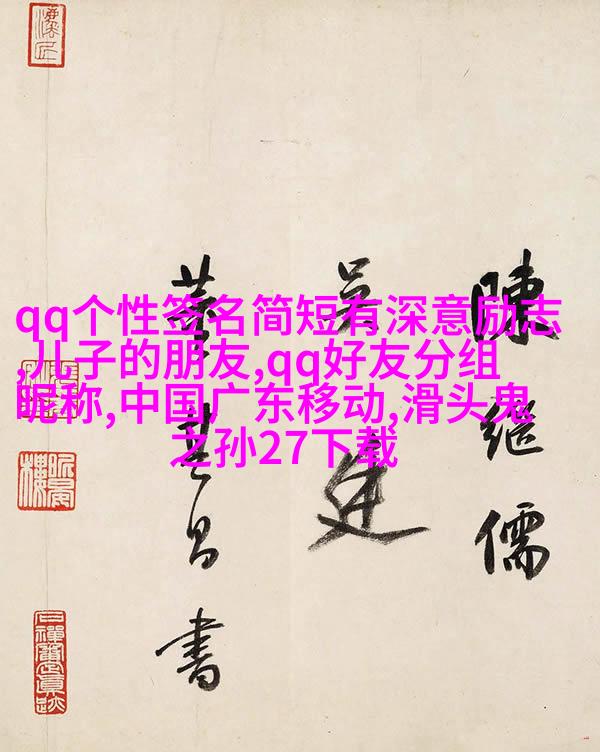 qq个性签名简短有深意励志
,儿子的朋友,qq好友分组
昵称,中国广东移动,滑头鬼
之孙27下载
陳继儒
吴廷
董其昌書